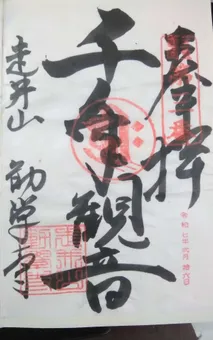 奉拝
千手観音
走井山
勧学寺
令和七年六月十六日